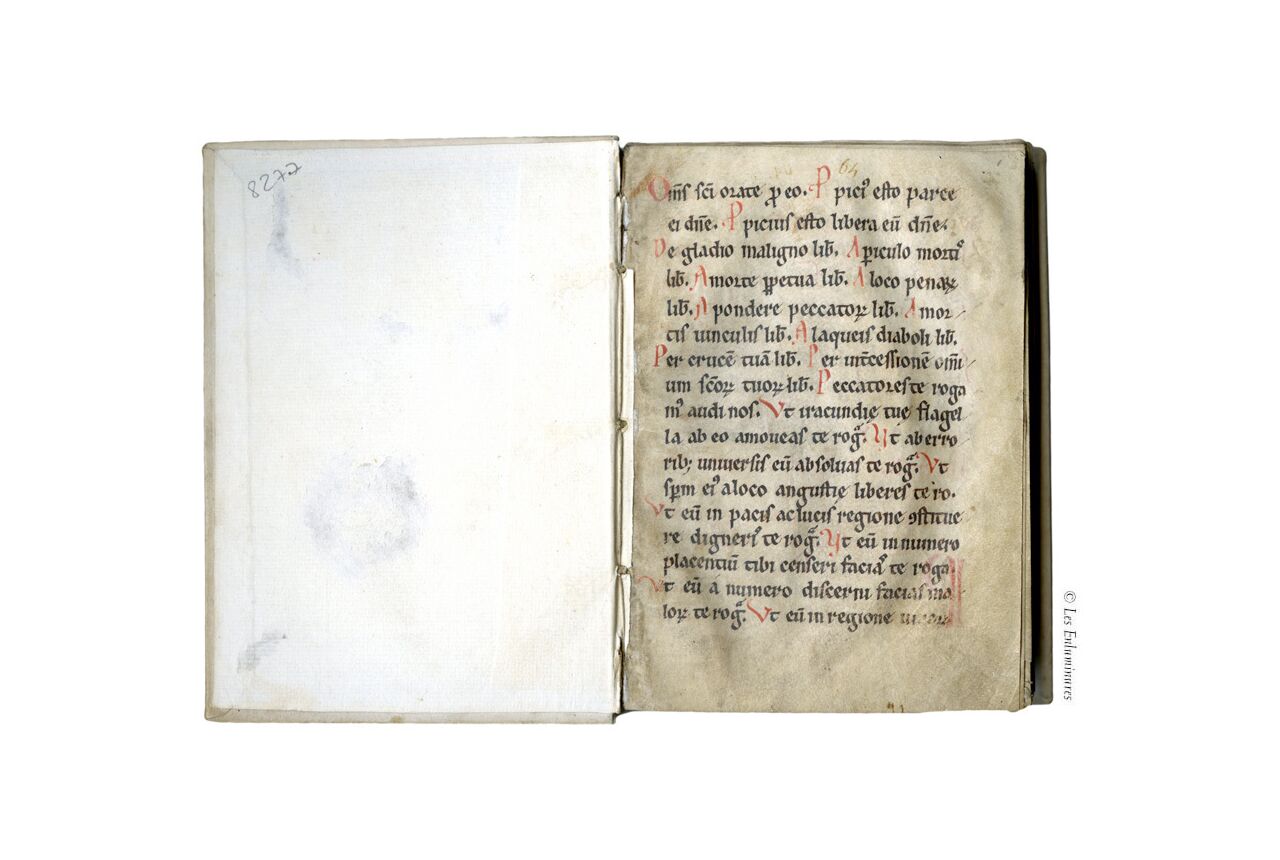 8277
64
Om̅s sc̅i orate ꝓ eo. Ppici᷒ esto parce
ei dn̅e. Ppicius esto libera eu̅ dn̅e.
De gladio maligno lib̅. A ꝑiculo morti᷒
lib̅. A morte ꝑpetua lib̅. A loco penaꝝ
lib̅. A pondere peccatoꝝ lib̅. A mor-
tis uinculis lib̅. A laqueis diaboli lib̅.
Per cruce̅ tua̅ lib̅. Per int̅cessione̅ om̅i
um sc̅oꝝ tuoꝝ lib̅. Peccatores te roga
m᷒ audi nos. Vt iracundię tue flagel
la ab eo amoueas te rog̅. Vt ab erro
rib; uniuersis eu̅ absoluas te rog̅. Vt
sp̅m ei᷒ a loco angustię liberes te ro.
Vt eu̅ in pacis ac lucis regione ꝯstitue
re digneri᷒ te rog̅. Vt eu̅ in numero
placentiu̅ tibi censeri facia᷒ te roga.
Vt eu̅ a numero discerni facias ma
loꝝ te rog̅. Vt eu̅ in regione
© Les Enluminures